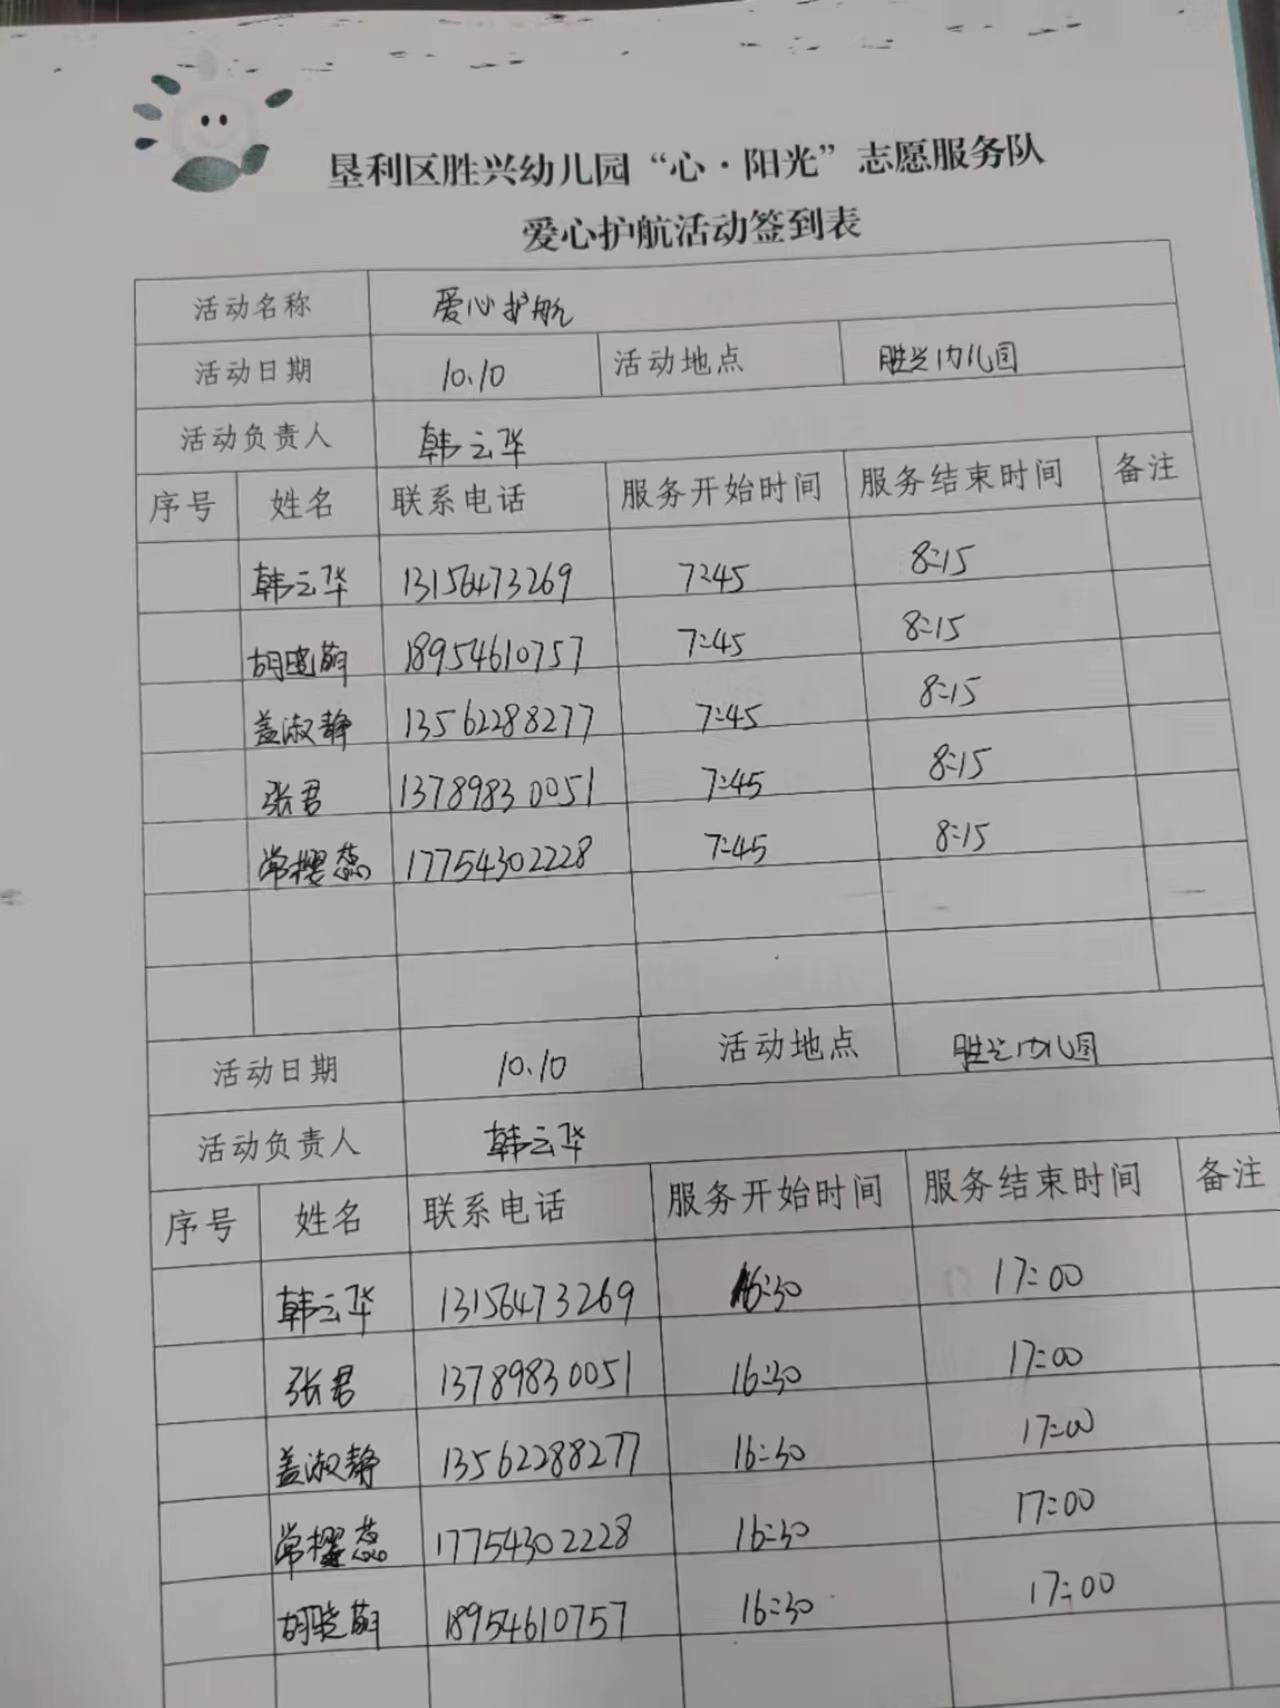 垦利区胜兴幼儿园“心·阳光”志愿服务队
爱心护航活动签到表
活动名称 爱心护航
活动日期 10.10 活动地点 胜兴幼儿园
活动负责人 韩云华
序号 姓名 联系电话 服务开始时间 服务结束时间 备注
韩云华 13156473269 7:45 8:15
胡晓萌 18954610757 7:45 8:15
盖淑静 13562288277 7:45 8:15
张君 13789830051 7:45 8:15
常樱蕊 17754302228 7:45 8:15
活动日期 10.10 活动地点 胜兴幼儿园
活动负责人 韩云华
序号 姓名 联系电话 服务开始时间 服务结束时间 备注
韩云华 13156473269 16:30 17:00
张君 13789830051 16:30 17:00
盖淑静 13562288277 16:30 17:00
常樱蕊 17754302228 16:30 17:00
胡晓萌 18954610757 16:30 17:00